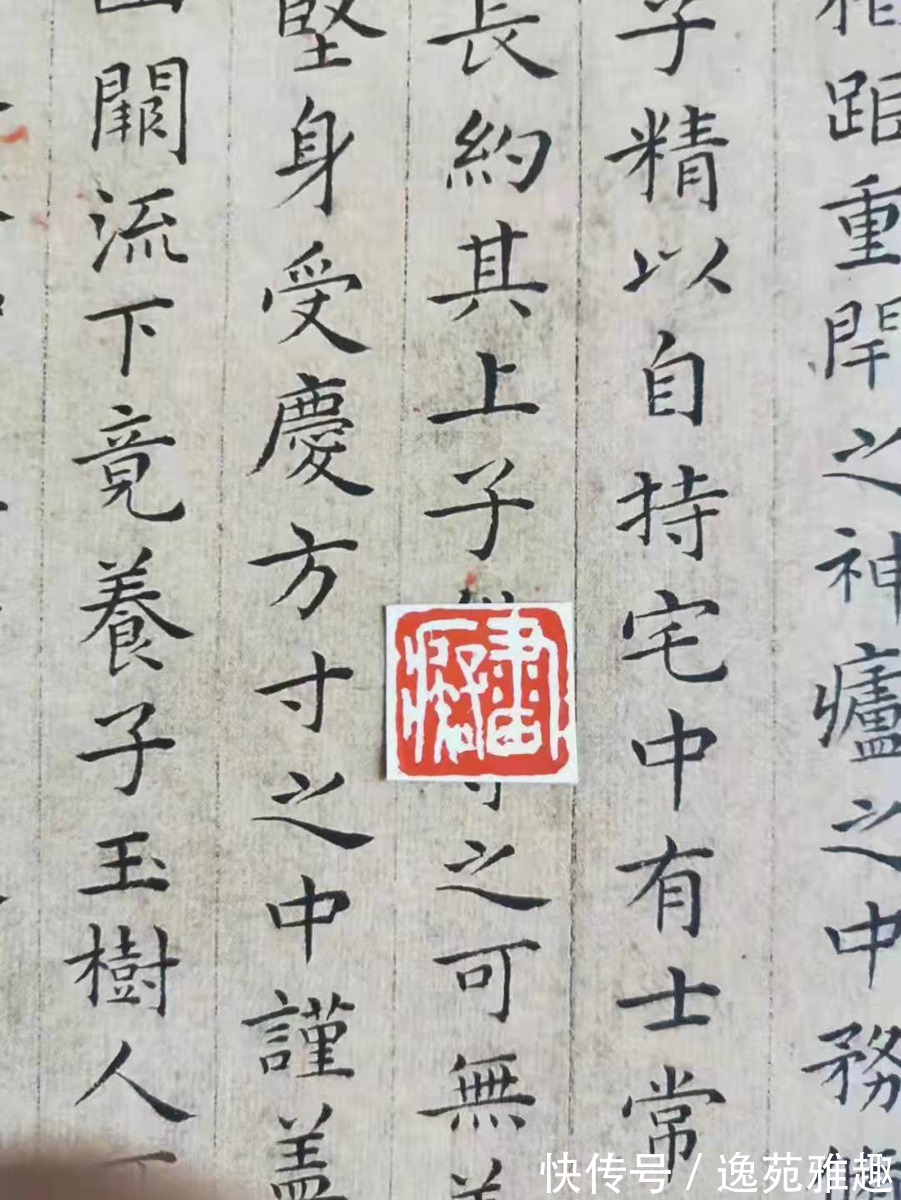 距重閈之神廬之中務
子精以自持宅中有士常
長約其上子守之可無
堅身受慶方寸之中謹蓋
闕流下竟養子玉樹人
畫癡
快传号 / 逸苑雅趣